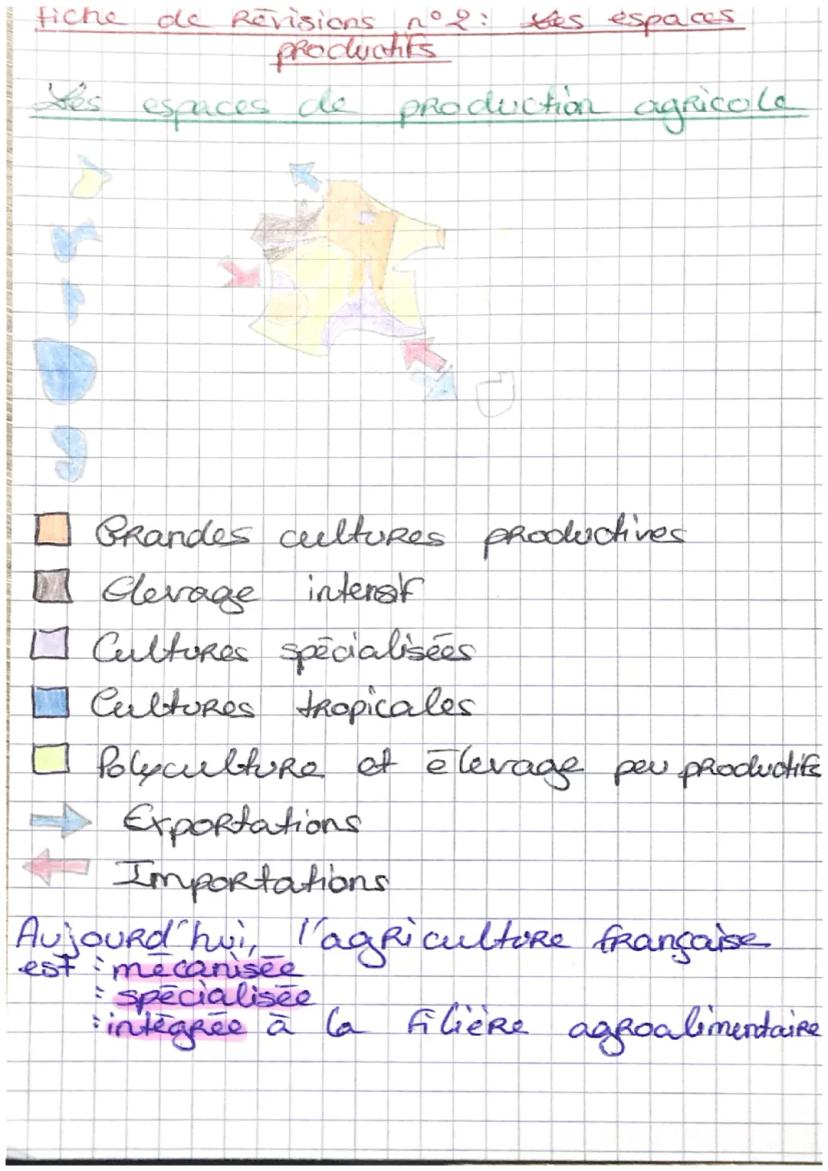 fiche de Révisions n°2: Les espaces
productifs
Les espaces de production agricole
Grandes cultures productives
Elevage intensif
Cultures spécialisées
Cultures tropicales
Polyculture et élevage peu productifs
Exportations
Importations
Aujourd'hui, l'agriculture française
est : mécanisée
: spécialisée
: intégrée à la filière agroalimentaire